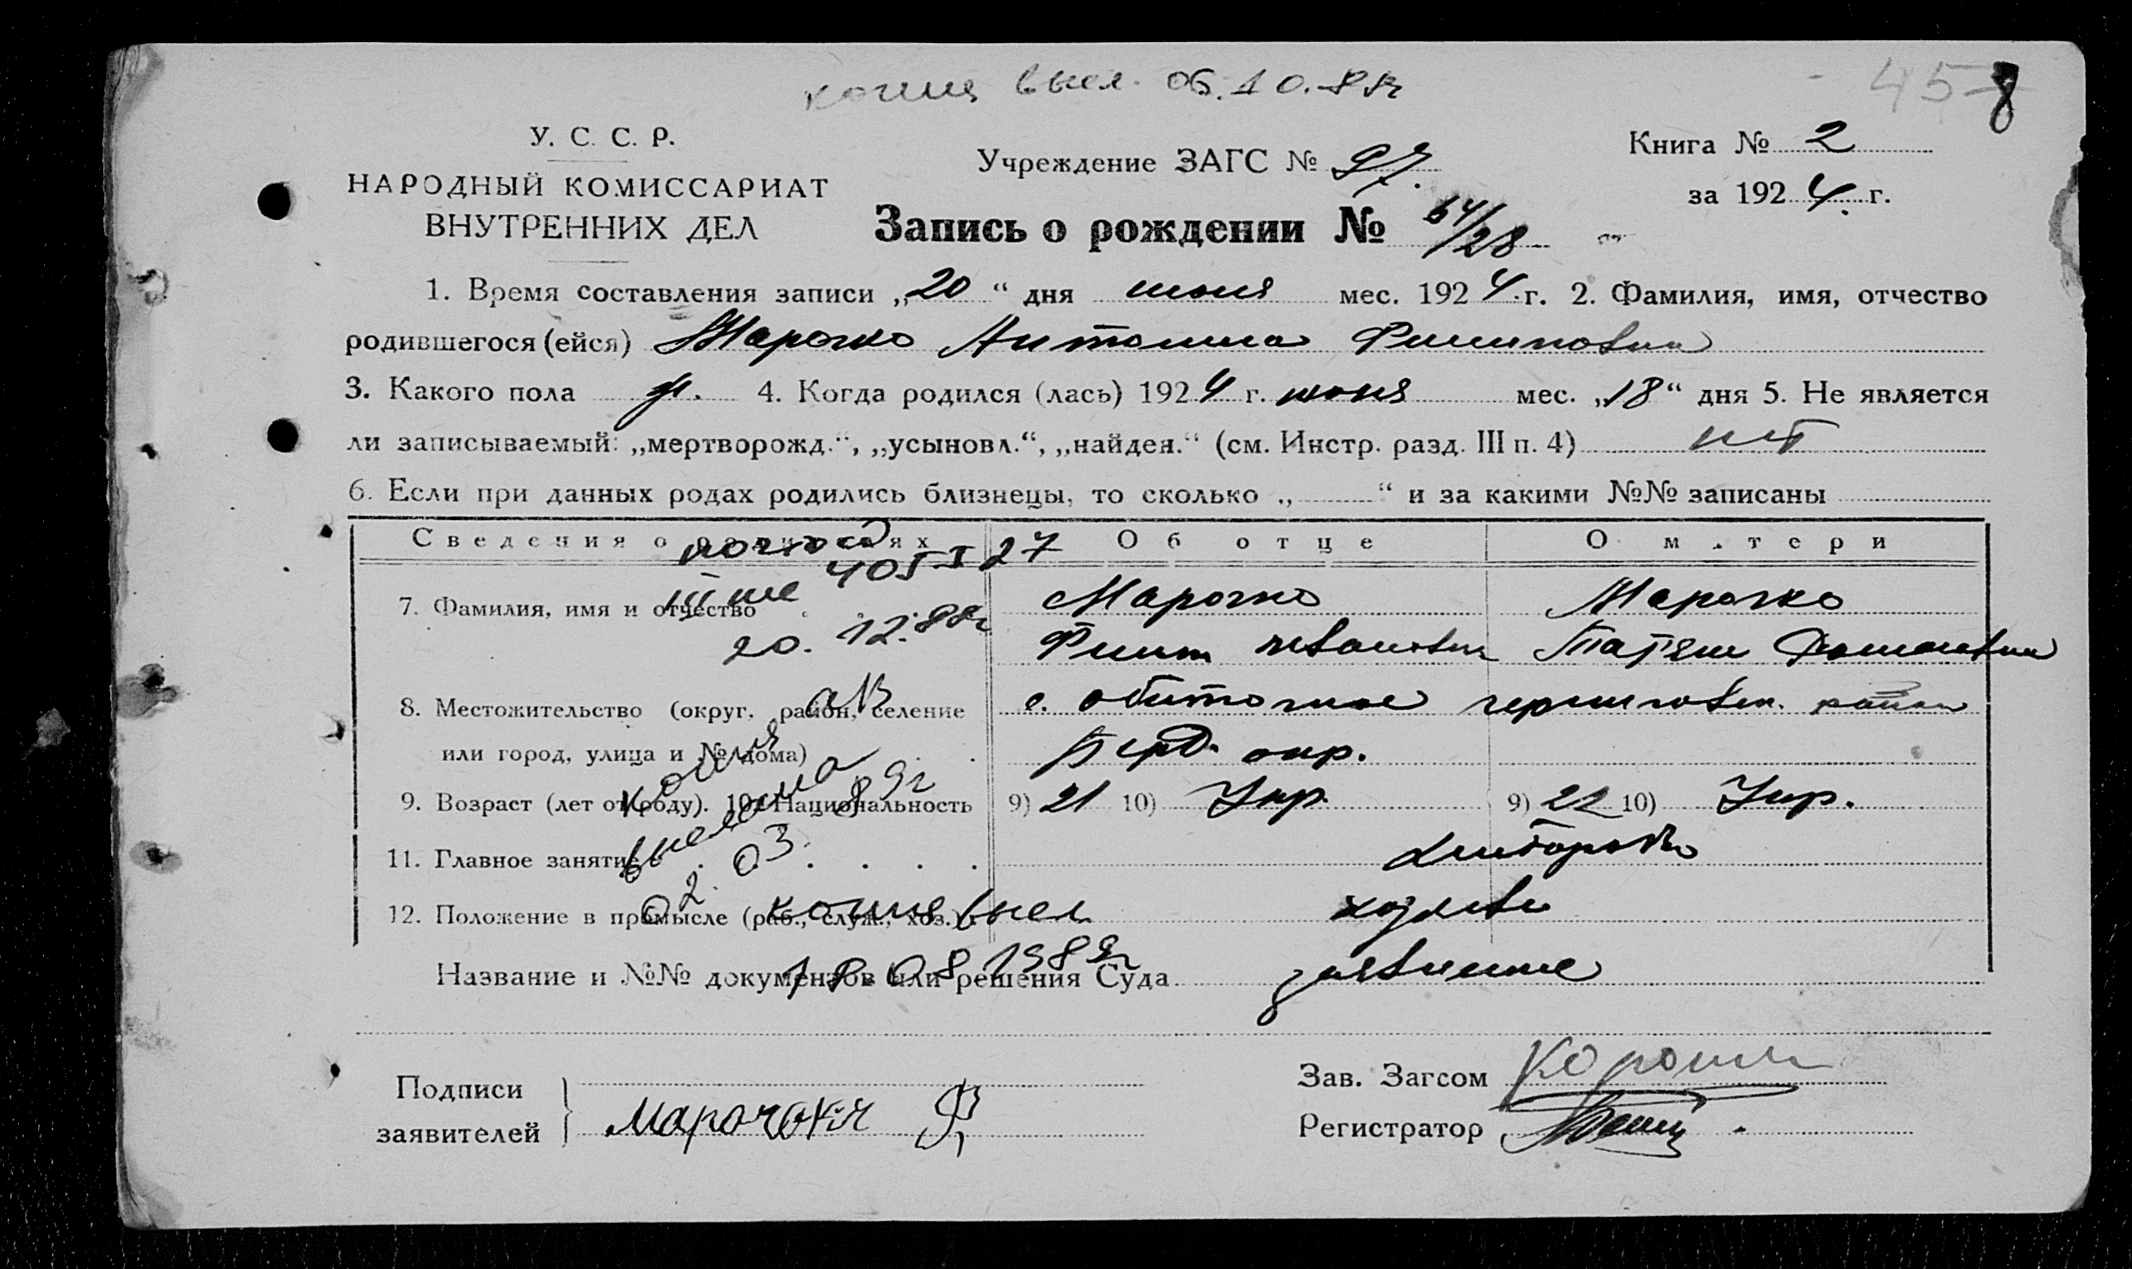 копия выел. 05.10.88г
457 8
У. С. С. Р.
НАРОДНЫЙ КОМИССАРИАТ
ВНУТРЕННИХ ДЕЛ
Учреждение ЗАГС № 97.
Книга № 2
за 1924 г.
Запись о рождении № 64/28
1. Время составления записи „20“ дня июня мес. 1924 г. 2. Фамилия, имя, отчество
родившегося (ейся) Марочко Антонина Филиповна
3. Какого пола ж. 4. Когда родился (лась) 1924 г. июня мес. „18“ дня 5. Не является
ли записываемый: „мертворожд.“, „усыновл.“, „найден.“ (см. Инстр. разд. III п. 4) нет
6. Если при данных родах родились близнецы, то сколько „ “ и за какими №№ записаны
Сведения о родителях Об отце О матери
7. Фамилия, имя и отчество Марочко Марочко
Филип Иванович Татьяна
20. 12. 88г
8. Местожительство (округ, район, селение с. Обиточное черниговск. район
или город, улица и № дома) Берд. окр.
9. Возраст (лет от роду). 10. Национальность 9) 21 10) Укр. 9) 22 10) Укр.
копия выслана 02. 03. 89г
11. Главное занятие хлебороб
12. Положение в промысле (раб., служ., хоз.) хозяева
копия выел
Название и №№ документов или решения Суда заявление
08 1989г
Подписи
заявителей Марочокя Ф
Зав. Загсом
Регистратор